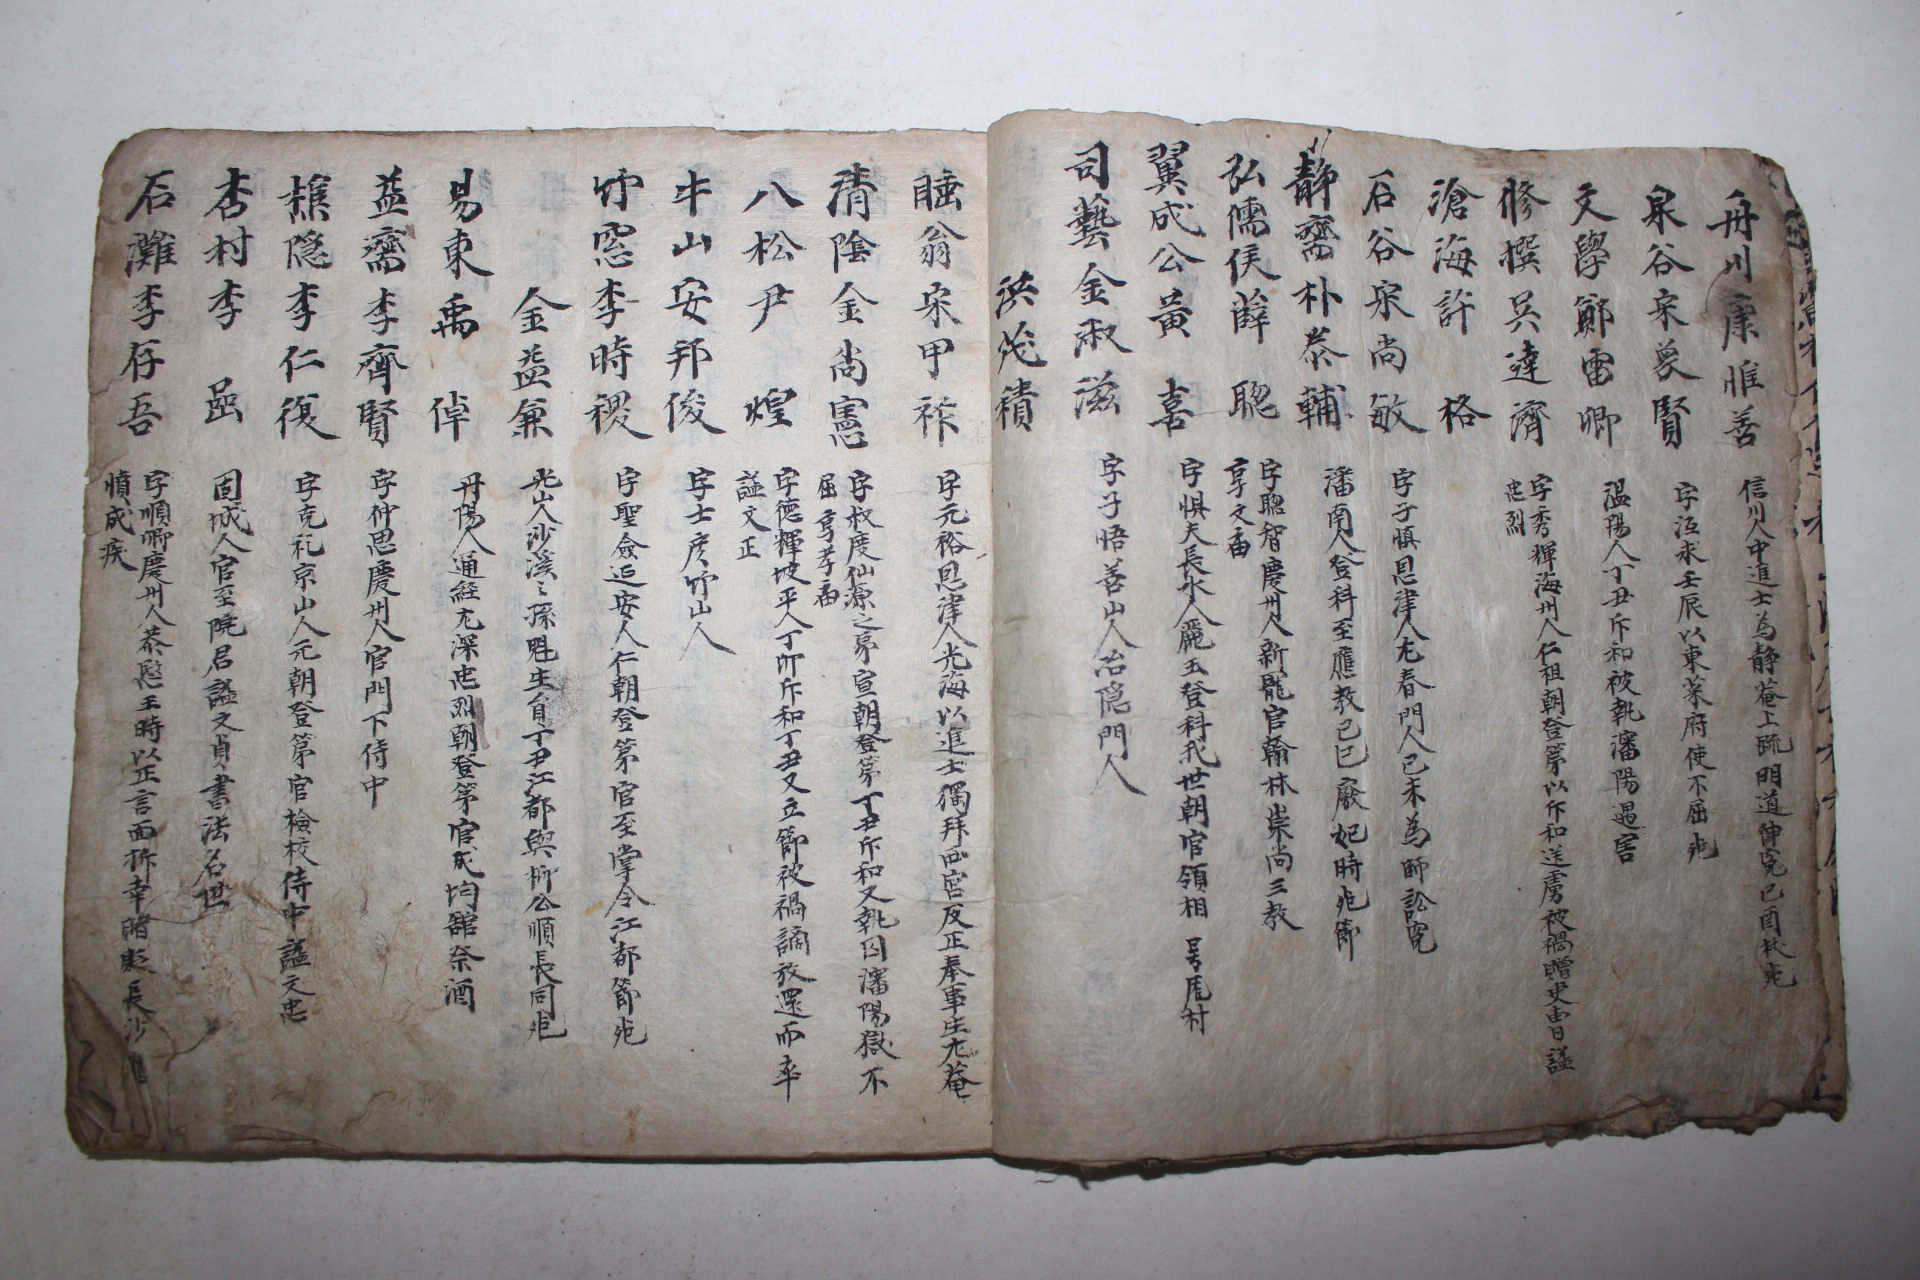 舟川康惟善 信川人中進士為静菴上疏明道伸冤己酉秋死
泉谷宋象賢 字德求壬辰以東萊府使不屈死
文學鄭雷卿 溫陽人丁丑斥和被執瀋陽遇害
修撰吳達濟 字秀輝海州人仁祖朝登第以斥和送虜被禍贈史曹曰謚
忠烈
滄海許格
石谷宋尚敏 字子愼恩津人尤春門人己未為師訟冤
靜齋朴泰輔 潘南人登科至應教己巳廢妃時死節
弘儒侯薛聰 字聡智慶州人新羅官翰林崇尚三教
享文庙
翼成公黃喜 字惧夫長水人麗王登科我世朝官領相 号厖村
司藝金淑滋 字子悟善山人冶隱門人
洪茂績
睡翁宋甲祚 字元裕恩津人光海以進士獨拜西宮反正奉事生尤菴
清陰金尚憲 字叔度仙源之弟宣朝登第丁丑斥和又執囚瀋陽獄不
屈 享孝庙
八松尹煌 字德輝坡平人丁卯斥和丁丑又立節被禍謫放還而卒
謚文正
牛山安邦俊 字士彦竹山人
竹窓李時稷 字聖俞延安人仁朝登第官至掌令江都節死
金益兼 光山人沙溪之孫魁生員丁丑江都與 公順長同死
易東禹倬 丹陽人通經尤深忠烈朝登第官成均舘祭酒
益齋李齊賢 字仲思慶州人官門下侍中
樵隱李仁復 字克礼京山人元朝登第官檢校侍中謚文忠
杏村李嵒 固城人官至院君謚文貞書法名世
石灘李存吾 字順卿慶州人恭愍王時以正言面折辛旽貶長沙
憤成疾